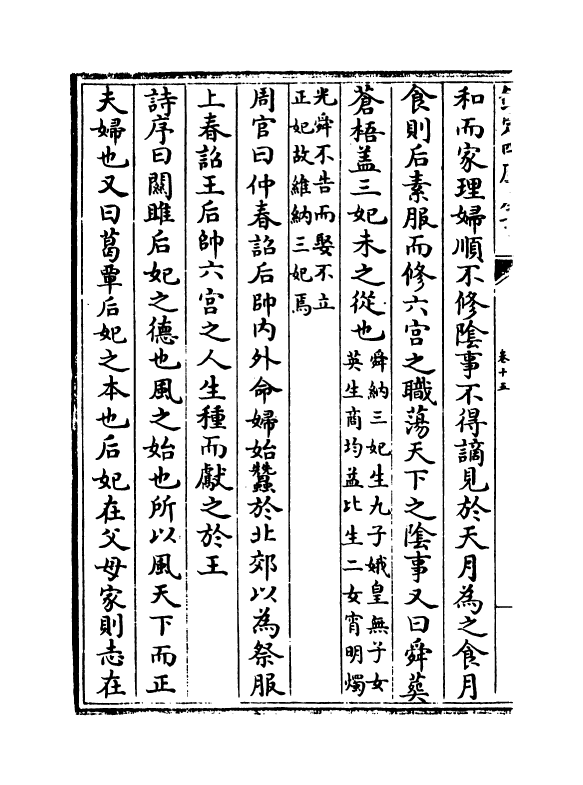 卷十五
和而家理婦順不修陰事不得謫見於天月為之食月
食則后素服而修六宮之職蕩天下之陰事又曰舜葬
蒼梧盖三妃未之從也
舜納三妃生九子娥皇無子女
英生商均益比生二女宵明燭
光舜不告而娶不立
正妃故維納三妃焉
周官曰仲春詔后帥内外命婦始蠶於北郊以為祭服
上春詔王后帥六宮之人生種而獻之於王
詩序曰關雎后妃之德也風之始也所以風天下而正
夫婦也又曰葛覃后妃之本也后妃在父母家則志在